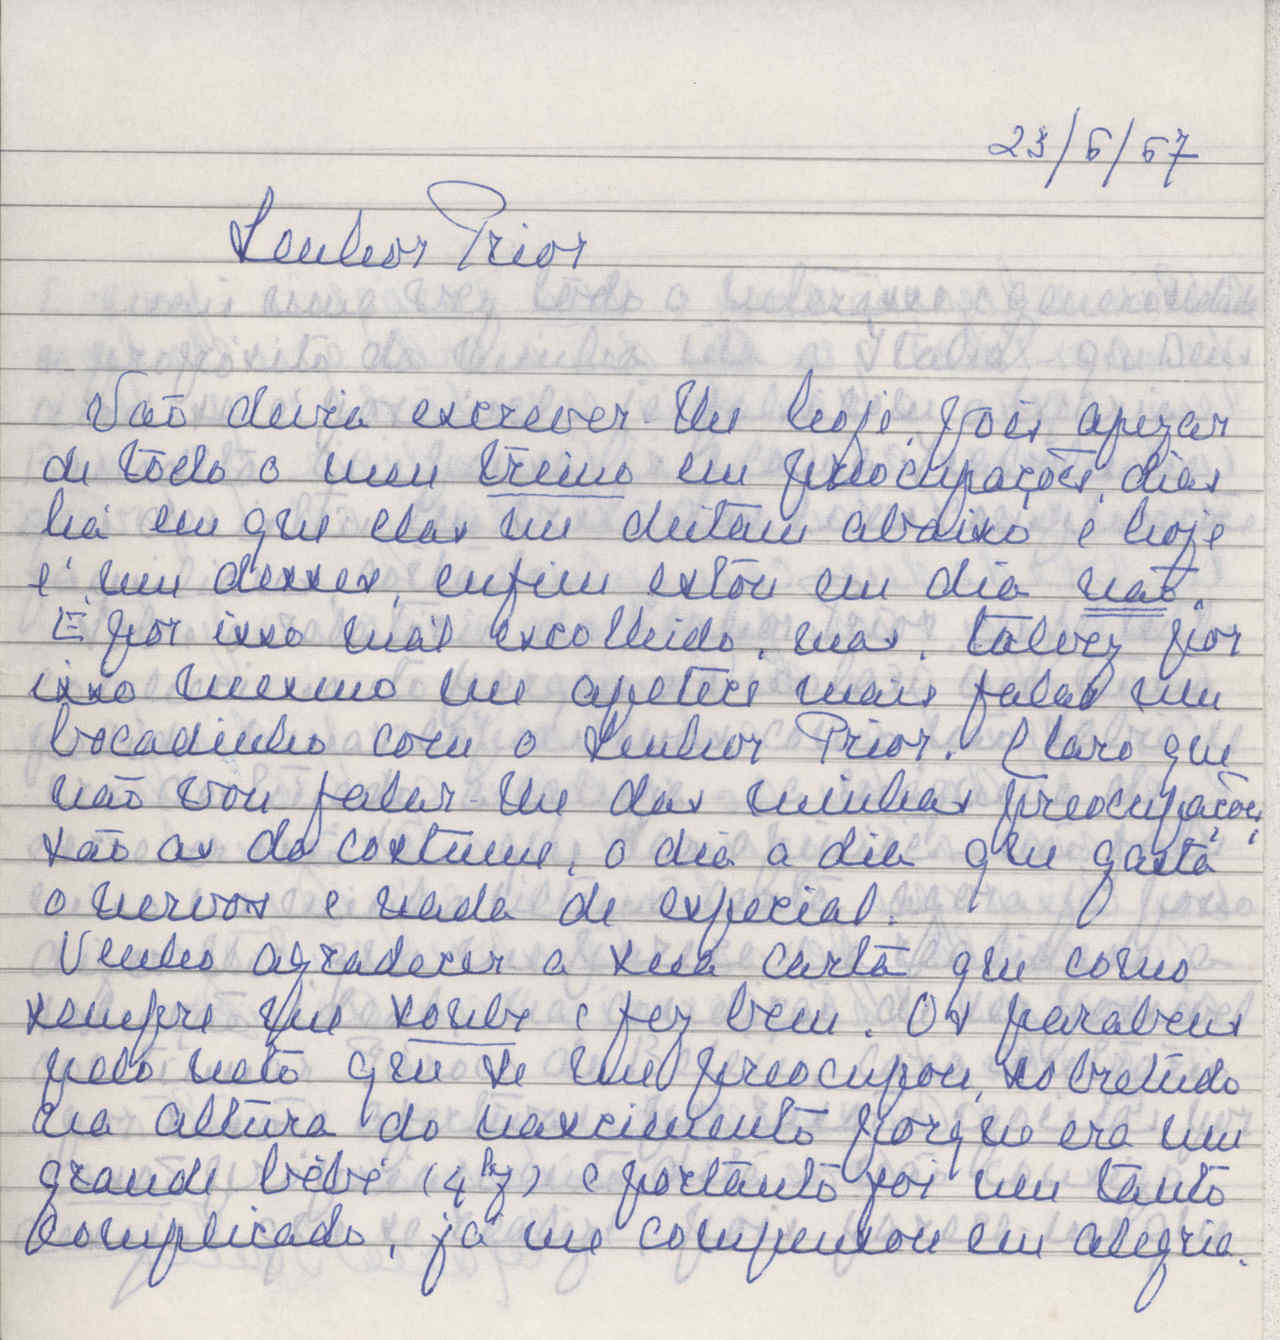 23/6/67
Senhor Prior
Não devia escrever-lhe hoje, pois apezar
de todo o meu treino em preocupações, dias
há em que elas me deitam abaixo e hoje
é um desses, enfim estou em dia não.
É por isso mal escolhido, mas, talvez por
isso mesmo me apetece mais falar um
bocadinho com o Senhor Prior. Claro que
não vou falar-lhe das minhas preocupações,
são as do costume, o dia a dia que gasta
o nervos e nada de especial.
Venho agradecer a sua carta que como
sempre me soube e fez bem. Os parabens
pelo neto que se me preocupou, sobretudo
na altura do nascimento porque era um
grande bébé (4 kg) e portanto foi um tanto
complicado, já me compensou em alegria.